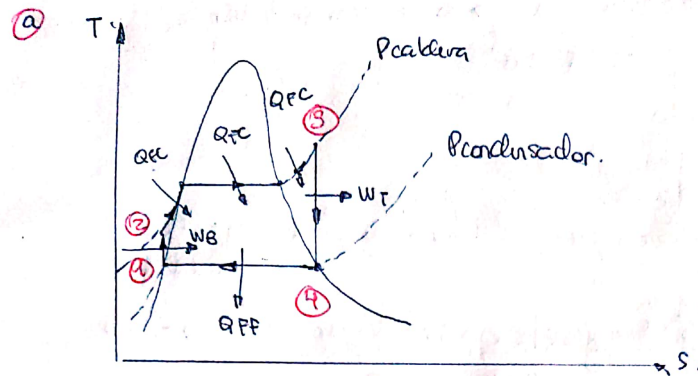 a
T
Pcaldera
QFC
3
QFC
Pcondensador.
QFC
WT
2
WB
1
4
QFF
S